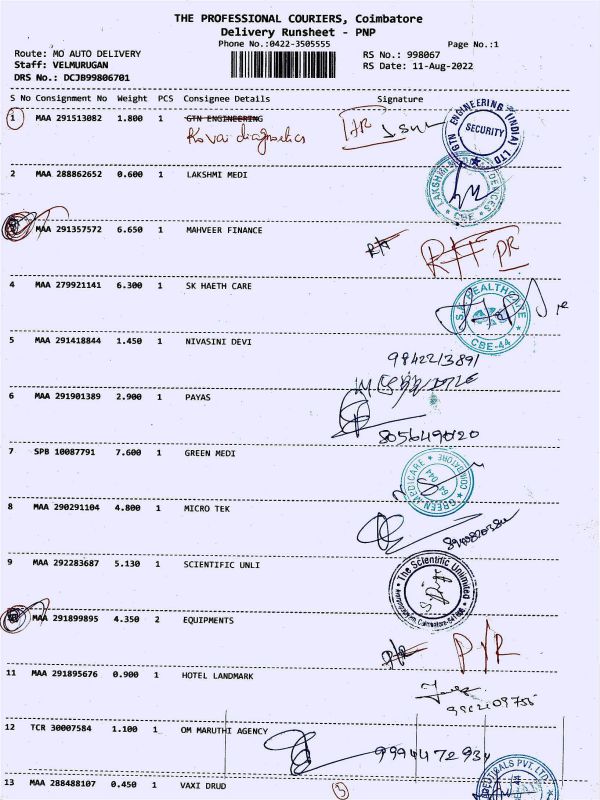 THE PROFESSIONAL COURIERS, Coimbatore
Delivery Runsheet - PNP
Phone No.:0422-3505555
Page No.:1
Route: MO AUTO DELIVERY
RS No.: 998067
Staff: VELMURUGAN
RS Date: 11-Aug-2022
DRS No.: DCJB99806701
S No Consignment No Weight PCS Consignee Details Signature
1 MAA 291513082 1.800 1 GTN ENGINEERING
Kovai diagnostics
GTN ENGINEERING (INDIA) LTD
SECURITY
2 MAA 288862652 0.600 1 LAKSHMI MEDI
LAKSHMI
CBE
3 MAA 291357572 6.650 1 MAHVEER FINANCE
4 MAA 279921141 6.300 1 SK HAETH CARE
S.K HEALTHCARE
CBE-44
5 MAA 291418844 1.450 1 NIVASINI DEVI
9842213891
6 MAA 291901389 2.900 1 PAYAS
8056649020
7 SPB 10087791 7.600 1 GREEN MEDI
GREEN MEDICARE COIMBATORE
641044
8 MAA 290291104 4.800 1 MICRO TEK
9 MAA 292283687 5.130 1 SCIENTIFIC UNLI
The Scientific Unlimited
MAA 291899895 4.350 2 EQUIPMENTS
11 MAA 291895676 0.900 1 HOTEL LANDMARK
12 TCR 30007584 1.100 1 OM MARUTHI AGENCY
9994472934
13 MAA 288488107 0.450 1 VAXI DRUD
PVT LTD